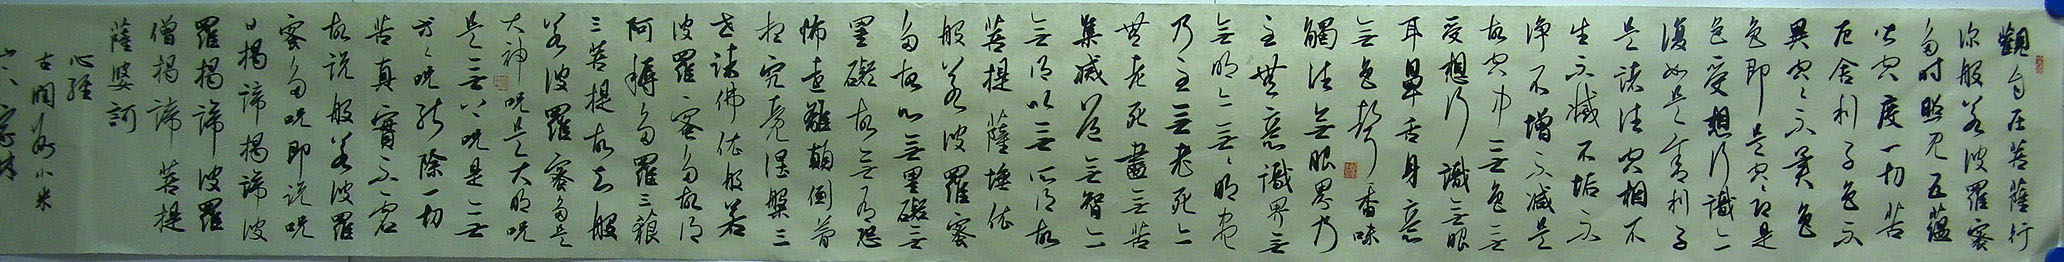 觀自在菩薩行
深般若波羅蜜
多時照見五蘊
皆空度一切苦
厄舍利子色不
異空々不異色
色即是空々即是
色受想行識亦
復如是舍利子
是諸法空相不
生不滅不垢不
淨不增不減是
故空中無色無
受想行識無眼
耳鼻舌身意
無色聲香味
觸法無眼界乃
至無意識界無
無明亦無々明盡
乃至無老死亦
無老死盡無苦
集滅道無智亦
無得以無所得故
菩提薩埵依
般若波羅蜜
多故心無罣礙無
罣礙故無有恐
怖遠離顛倒夢
想究竟涅槃三
世諸佛依般若
波羅蜜多故得
阿耨多羅三藐
三菩提故知般
若波羅蜜多是
大神咒是大明咒
是無上咒是無
等々咒能除一切
苦真實不虛
故說般若波羅
蜜多咒即說咒
曰揭諦揭諦波
羅揭諦波羅
僧揭諦菩提
薩婆訶
心經